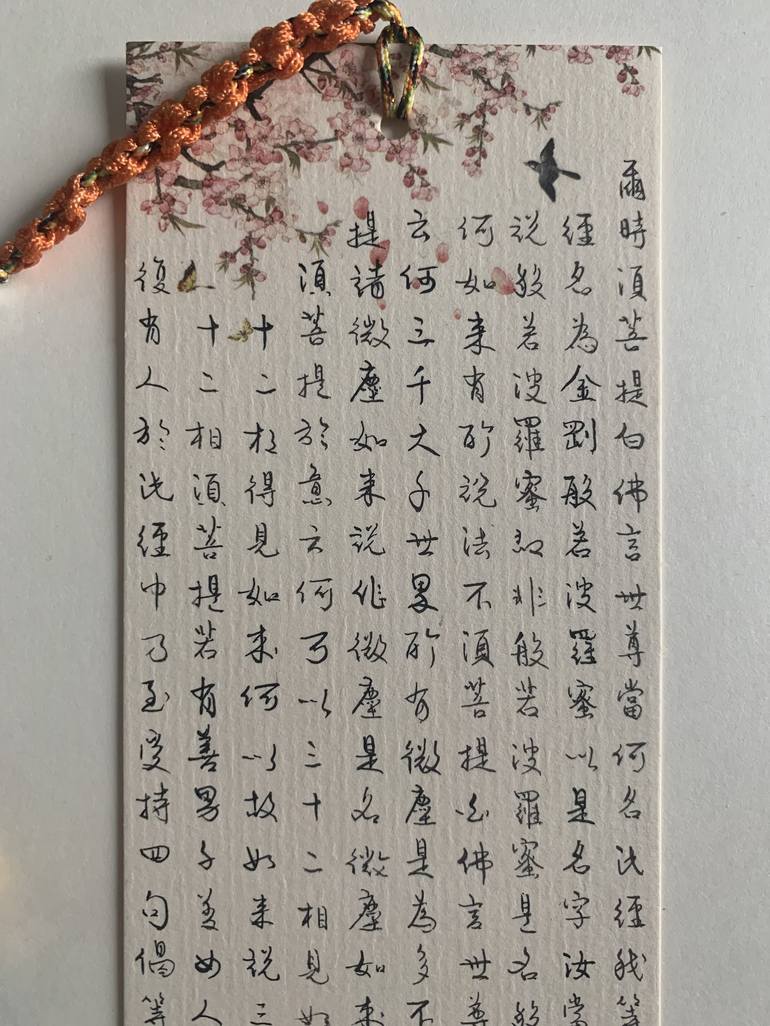 爾時須菩提白佛言世尊當何名此經我等
經名為金剛般若波羅蜜以是名字汝當
說般若波羅蜜即非般若波羅蜜是名般
何如来有所說法不須菩提白佛言世尊
云何三千大千世界所有微塵是為多不
提諸微塵如来說非微塵是名微塵如来
須菩提於意云何可以三十二相見如
十二相得見如来何以故如来說三
十二相須菩提若有善男子善女人
復有人於此經中乃至受持四句偈等